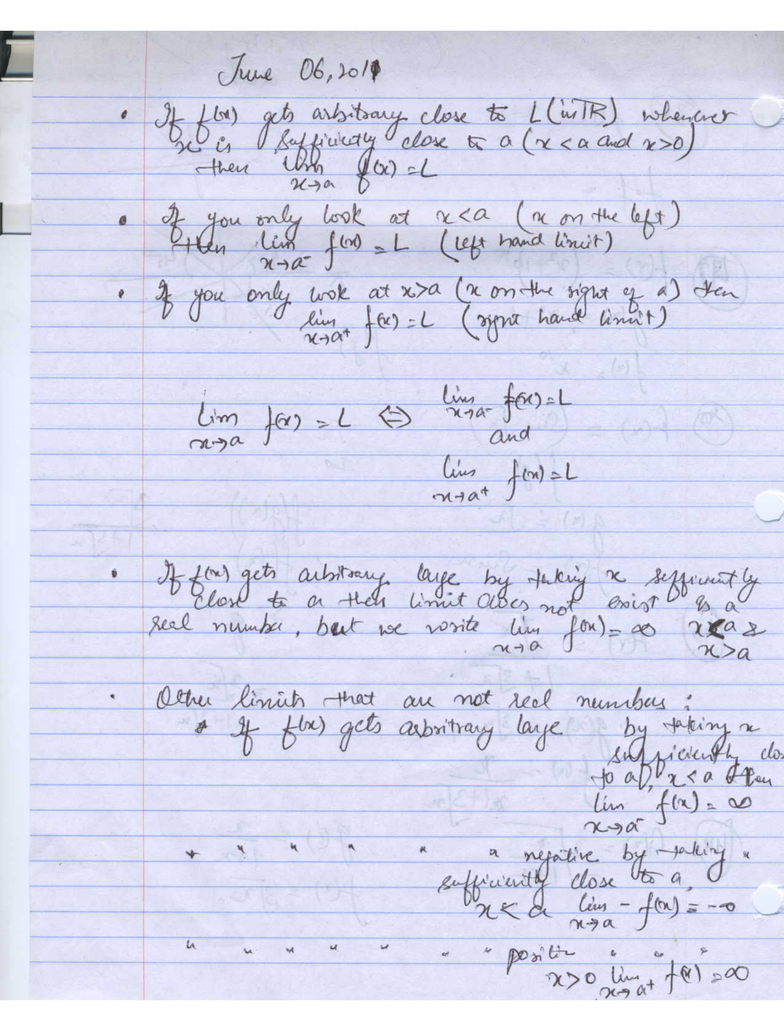 June 06, 2011
• If f(x) gets arbitrary close to L (in ℝ) whenever
x is sufficiently close to a (x < a and x > 0)
then lim x→a f(x) = L
• If you only look at x < a (x on the left)
then lim x→a⁻ f(x) = L (left hand limit)
• If you only look at x > a (x on the right of a) then
lim x→a⁺ f(x) = L (right hand limit)
lim x→a f(x) = L ⇔ lim x→a⁻ f(x) = L
and
lim x→a⁺ f(x) = L
• If f(x) gets arbitrary large by taking x sufficiently
close to a then limit does not exist is a
real number, but we write lim x→a f(x) = ∞ x < a &
x > a
• Other limits that are not real numbers :
* If f(x) gets arbitrary large by taking x
sufficiently clos
to a, x < a then
lim x→a⁻ f(x) = ∞
* " " " " " negative by taking "
sufficiently close to a,
x < a lim x→a⁻ f(x) = -∞
" " " " " " " positive " " "
x > 0 lim x→a⁺ f(x) = ∞